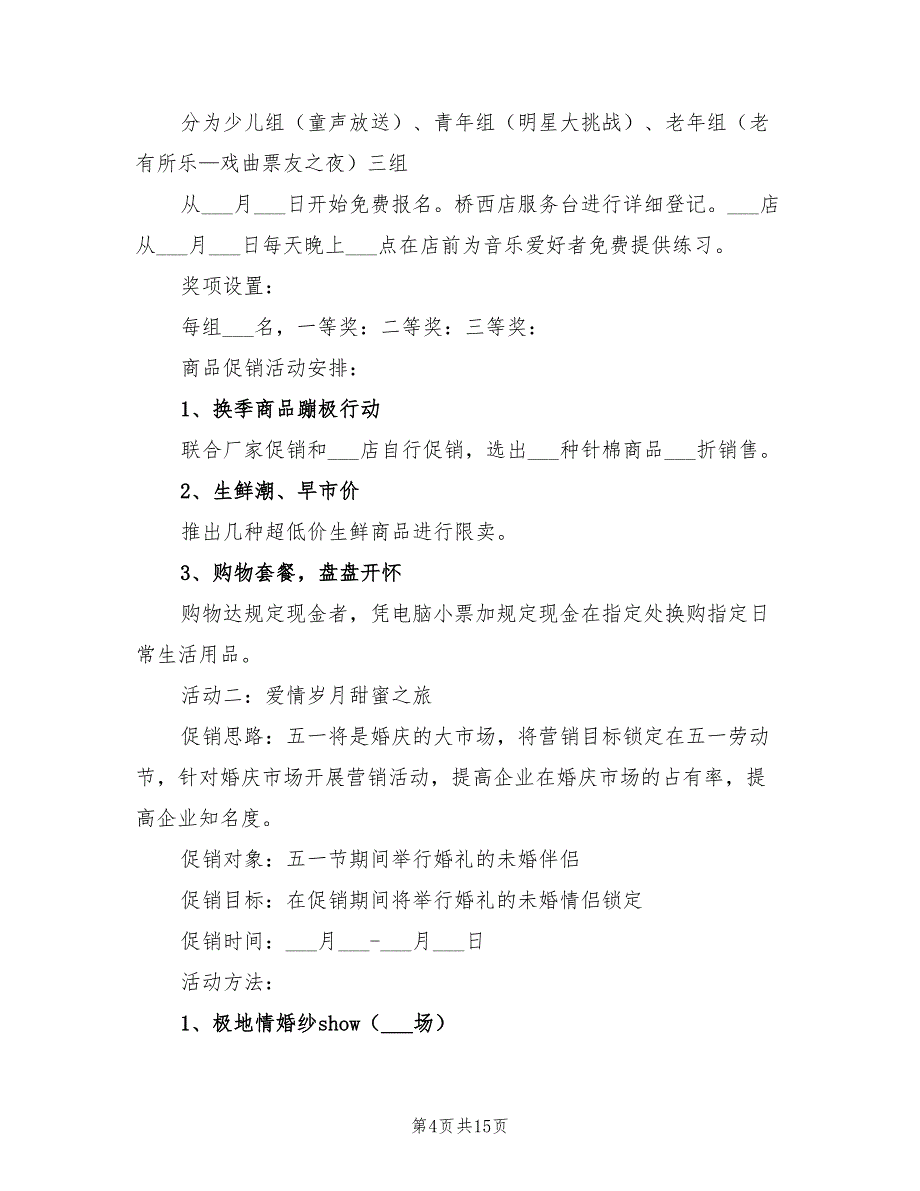 分为少儿组（童声放送）、青年组（明星大挑战）、老年组（老
有所乐—戏曲票友之夜）三组
从___月___日开始免费报名。桥西店服务台进行详细登记。___店
从___月___日每天晚上___点在店前为音乐爱好者免费提供练习。
奖项设置：
每组___名，一等奖：二等奖：三等奖：
商品促销活动安排：
1、换季商品蹦极行动
联合厂家促销和___店自行促销，选出___种针棉商品___折销售。
2、生鲜潮、早市价
推出几种超低价生鲜商品进行限卖。
3、购物套餐，盘盘开怀
购物达规定现金者，凭电脑小票加规定现金在指定处换购指定日
常生活用品。
活动二：爱情岁月甜蜜之旅
促销思路：五一将是婚庆的大市场，将营销目标锁定在五一劳动
节，针对婚庆市场开展营销活动，提高企业在婚庆市场的占有率，提
高企业知名度。
促销对象：五一节期间举行婚礼的未婚伴侣
促销目标：在促销期间将举行婚礼的未婚情侣锁定
促销时间：___月___-___月___日
活动方法：
1、极地情婚纱show（___场）
第4页共15页